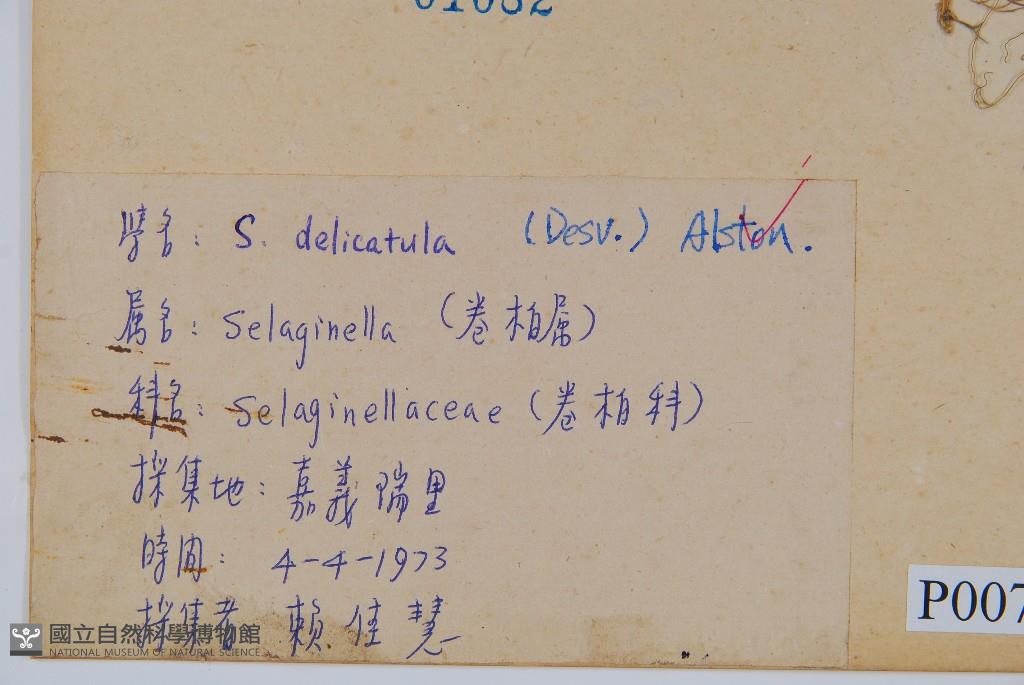 01082
學名: S. delicatula (Desv.) Alston.
属名: Selaginella (卷柏属)
科名: Selaginellaceae (卷柏科)
採集地: 嘉義瑞里
時间: 4-4-1973
採集者 賴佳慧
國立自然科學博物館
NATIONAL MUSEUM OF NATURAL SCIENCE
P007